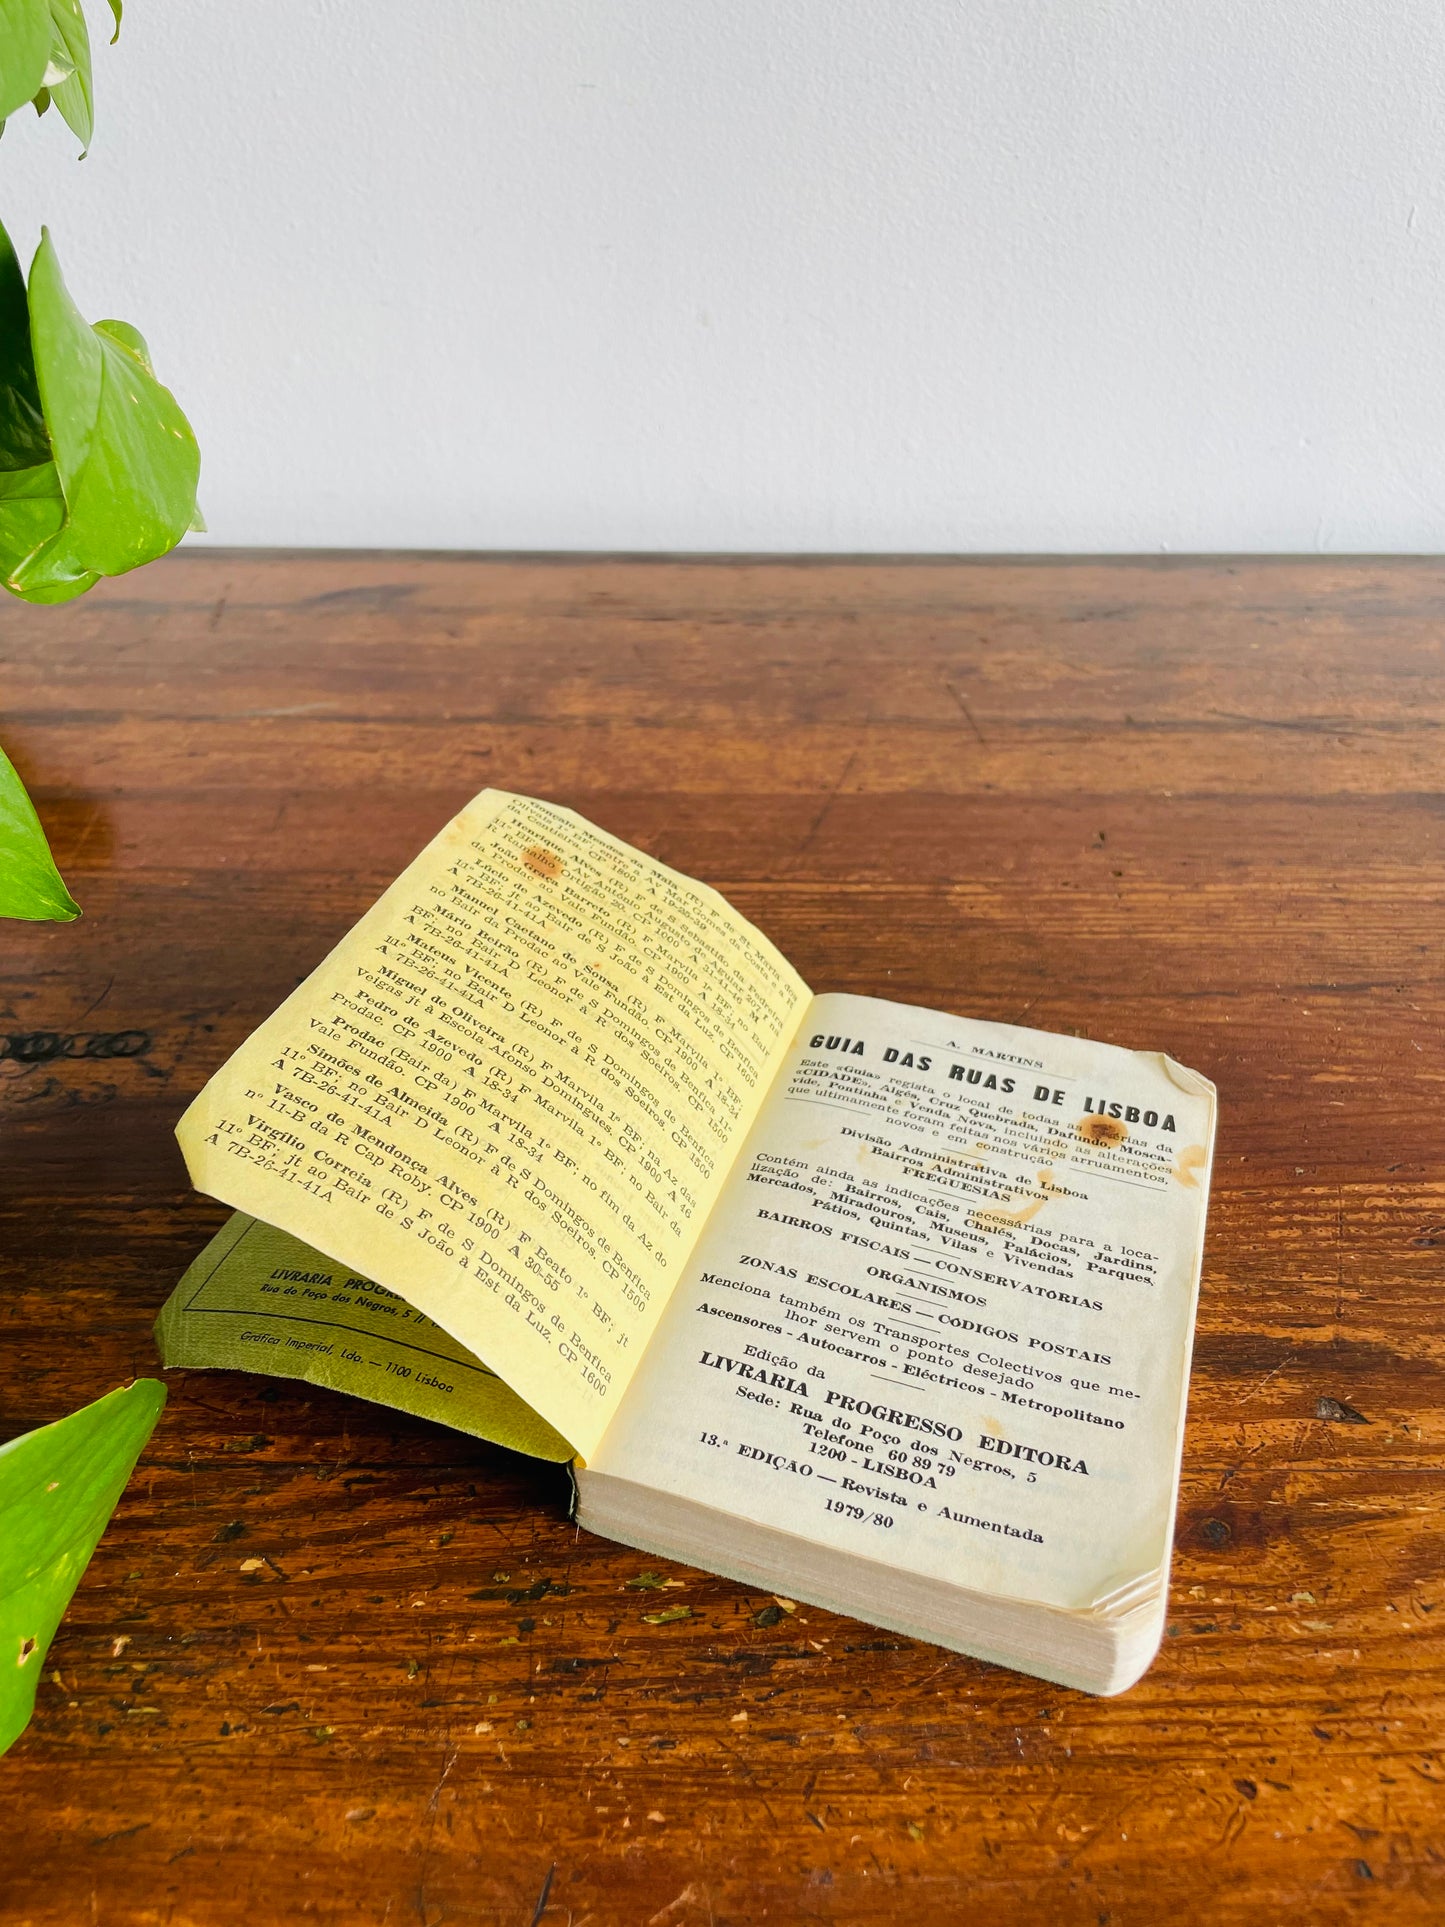 Gonçalo Mendes da Maia (R) F de St Maria dos
Olivais 1º BF; entre a Av Mar Gomes da Costa e a
da Centieira. CP 1800. A 19-25-39
Henrique Alves (R) F de S Sebastião da Pedreira
11º BF; e na Av António Augusto de Aguiar 207 r na
R Ramalho Ortigão 20. CP 1000 A 21-41-46 M
João Graça Barreto (R) F Marvila 1º BF; no Bair
da Prodac ao Vale Fundão. CP 1900 A 18-34
Lúcio de Azevedo (R) F de S Domingos de Benfica
11º BF; jt ao Bair de S João à Est da Luz. CP 1600
A 7B-26-41-41A
Manuel Caetano de Sousa (R) F Marvila 1º BF;
no Bair da Prodac ao Vale Fundão. CP 1900 A 18-34
Mário Beirão (R) F de S Domingos de Benfica 11º
BF; no Bair D Leonor à R dos Soeiros. CP 1500
A 7B-26-41-41A
Mateus Vicente (R) F de S Domingos de Benfica
11º BF; no Bair D Leonor à R dos Soeiros. CP 1500
A 7B-26-41-41A
Miguel de Oliveira (R) F Marvila 1º BF; na Az das
Veigas jt à Escola Afonso Domingues. CP 1900 A 46
Pedro de Azevedo (R) F Marvila 1º BF; no Bair da
Prodac. CP 1900 A 18-34
Prodac (Bair da) F Marvila 1º BF; no fim da Az do
Vale Fundão. CP 1900 A 18-34
Simões de Almeida (R) F de S Domingos de Benfica
11º BF; no Bair D Leonor à R dos Soeiros. CP 1500
A 7B-26-41-41A
Vasco de Mendonça Alves (R) F Beato 1º BF; jt
nº 11-B da R Cap Roby. CP 1900 A 30-55
Virgílio Correia (R) F de S Domingos de Benfica
11º BF; jt ao Bair de S João à Est da Luz. CP 1600
A 7B-26-41-41A
LIVRARIA
Rua do Poço dos Negros, 5
Gráfica Imperial, Lda. — 1100 Lisboa
A. MARTINS
GUIA DAS RUAS DE LISBOA
Este «Guia» regista o local de todas as artérias da
«CIDADE», Algés, Cruz Quebrada, Dafundo, Mosca-
vide, Pontinha e Venda Nova, incluindo as alterações
que ultimamente foram feitas nos vários arruamentos,
novos e em construção
Divisão Administrativa de Lisboa
Bairros Administrativos
FREGUESIAS
Contém ainda as indicações necessárias para a loca-
lização de: Bairros, Cais, Chalés, Docas, Jardins,
Mercados, Miradouros, Museus, Palácios, Parques,
Pátios, Quintas, Vilas e Vivendas
BAIRROS FISCAIS — CONSERVATÓRIAS
ORGANISMOS
ZONAS ESCOLARES — CÓDIGOS POSTAIS
Menciona também os Transportes Colectivos que me-
lhor servem o ponto desejado
Ascensores - Autocarros - Eléctricos - Metropolitano
Edição da
LIVRARIA PROGRESSO EDITORA
Sede: Rua do Poço dos Negros, 5
Telefone 60 89 79
1200 - LISBOA
13.ª EDIÇÃO — Revista e Aumentada
1979/80